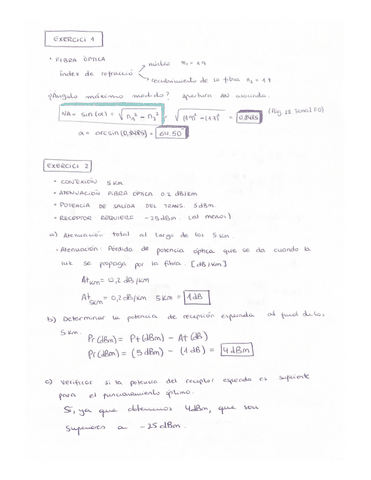 EXERCICI 1
• FIBRA ÓPTICA
índex de refracció
núcleo n₁ = 1.9
recubrimiento de la fibra n₂ = 1.7
¿Angulo máximo medido? apertura del
NA = sin(α) = √n₁² - n₂² = √(1.9)² - (1.7)² = 0.8485
α = arcsin(0,8485) =
EXERCICI 2
• CONEXIÓN 5 Km
• ATENUACIÓN FIBRA ÓPTICA 0.2 dB/Km
• POTENCIA DE SALIDA DEL TRANS. 5dBm.
• RECEPTOR REQUIERE -25dBm. (al menos)
a) Atenuación total al largo de los 5 Km.
• Atenuación: Pérdida de potencia óptica que se da cuando la
luz se propaga por la fibra. [dB/km]
At km = 0,2 dB/km
At 5km = 0,2 dB/km · 5 Km = 1 dB
b) Determinar la potencia de recepción esperada al final de los
5 Km.
Pr (dBm) = Pt (dBm) - At (dB)
Pr (dBm) = (5 dBm) - (1 dB) = 4 dBm
c) Verificar si la potencia del receptor esperada es suficiente
para el funcionamiento óptimo.
Sí, ya que obtenemos 4dBm, que son
superiores a -25 dBm.